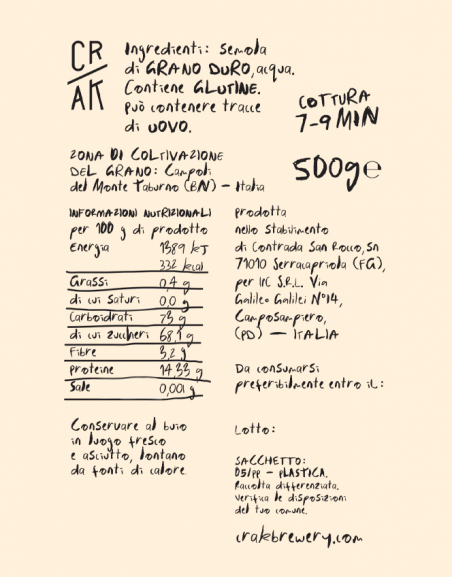 CR
AK
Ingredienti: Semola
di GRANO DURO, acqua.
Contiene GLUTINE.
Può contenere tracce
di UOVO.
COTTURA
7-9 MIN
500g e
ZONA DI COLTIVAZIONE
DEL GRANO: Campoli
del Monte Taburno (BN) – Italia
INFORMAZIONI NUTRIZIONALI
per 100 g di prodotto
Energia 1389 kJ
332 kcal
Grassi 0,4 g
di cui Saturi 0,0 g
Carboidrati 73 g
di cui zuccheri 68,1 g
Fibre 3,2 g
Proteine 14,33 g
Sale 0,001 g
Conservare al buio
in luogo fresco
e asciutto, lontano
da fonti di calore
Prodotta
nello Stabilimento
di Contrada San Rocco, Sn
71010 Serracapriola (FG),
per IIC S.R.L. Via
Galileo Galilei N°14,
Camposampiero,
(PD) – ITALIA
Da consumarsi
preferibilmente entro il:
Lotto:
SACCHETTO:
05/PP – PLASTICA.
Raccolta differenziata.
Verifica le disposizioni
del tuo comune.
crakbrewery.com